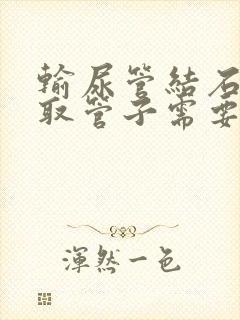 輸尿管結石
取管子需要
渾然一色